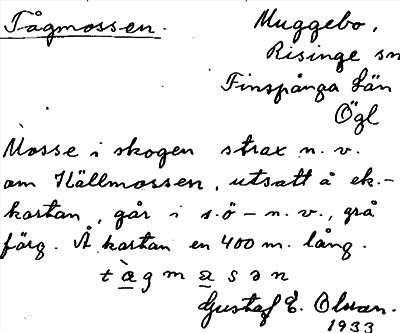 Tågmossen.
Muggebo,
Risinge sn
Finspånga län
Ögl
Mosse i skogen strax n. v.
om Hällmossen, utsatt å ek.-
kartan, går i s.ö – n. v., grå
färg. Å kartan en 400 m. lång.
t à g m a s ə n
Gustaf E. Olsson.
1933